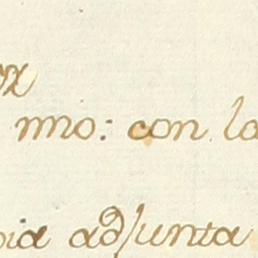 mno: con la
adjunta